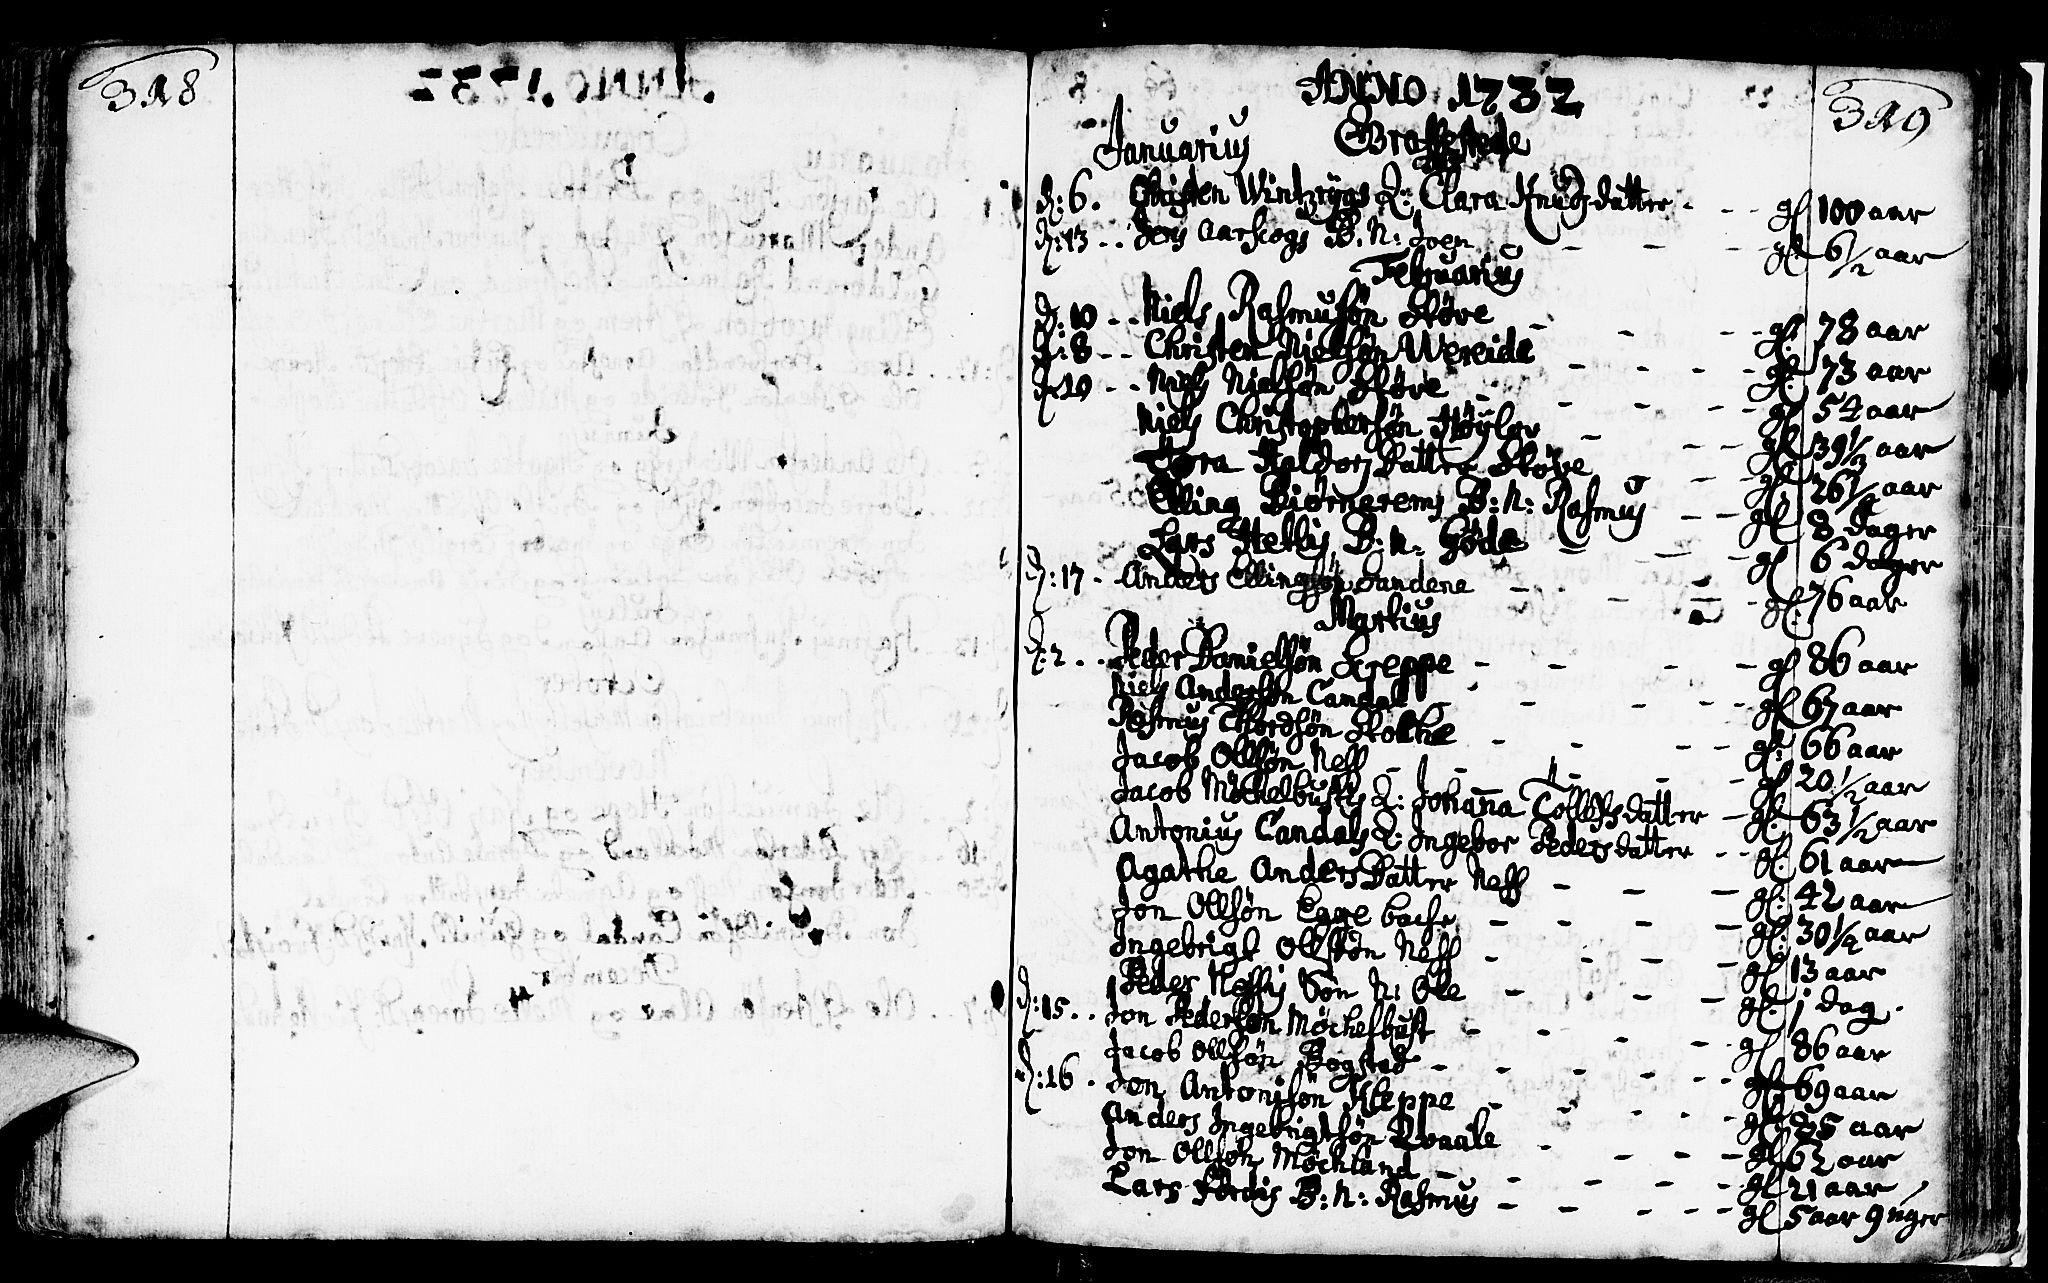 328
ANNO 1732
329
Januarius Begraffvede
d: 6. Christen Wintzrÿgs Q: Clara Knudsdatter - - - gl 100 aar
d: 13 - - Jens Aarskogs B: N: Joen - - - gl 6 1/2 aar
Februarius
d: 10 - - Niels Rasmusøn Støve - - - gl 78 aar
d: 8 - - Christen Nielsøn Wereide - - - gl 73 aar
d 10 - - Niels Nielsøn Støve - - - gl 54 aar
Niels Christophersøn Støÿlen - - - gl 39 1/3 aar
Tora Haldors Datter Støve - - gl: 26 1/2 aar
Elling Biørnerems B: N: Rasmus - - gl 8 dager
Lars Hetlis B: N: Göde - - - gl 6 dager
d: 17 - Anders Ellingsøn Sandene - - - gl: 76 aar
Martius
d: 2 - - Peder Danielsøn Greppe - - - gl 86 aar
Niels Andersøn Candal - - - gl 67 aar
Rasmus Thordsøn Stockhe - - - gl: 66 aar
Jacob Ollsøn Ness - - - gl 20 1/2 aar
Jacob Möckelbusts Q: Johana Tollefsdatter - gl: 63 1/2 aar
Antonius Candals Q: Ingebor Pedersdatter - - gl: 61 aar
Agathe Anders Datter Ness - - - gl: 42 aar
Jon Ollsøn Eggebache - - - gl: 30 1/2 aar
Ingebrigt Ollsøn Ness - - - gl 13 aar
Peder Nessis Søn N: Ole - - - gl: 1 dag.
d: 15. - Jon Pedersøn Möchelbust - - - gl 86 aar
Jacob Ollsøn Bogsted - - - gl 69 aar
d: 16 - Jon Antonisøn Kleppe - - - gl 85 aar
Anders Ingebrigtsøn Qvaale - - - gl 62 aar
Jon Ollsøn Möckland - - - gl 21 aar
Lars Hordis B: N: Rasmus - - - gl 5 aar 9 uger